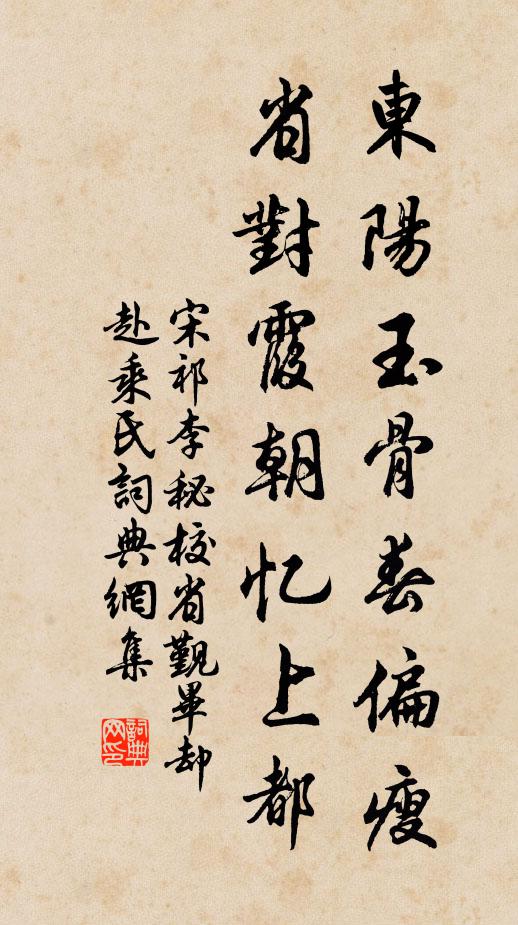 東陽玉骨春偏瘦
省對霞朝忆上都
宋祁李秘校省觐畢却
赴乘氏詞典網集
詞典网印